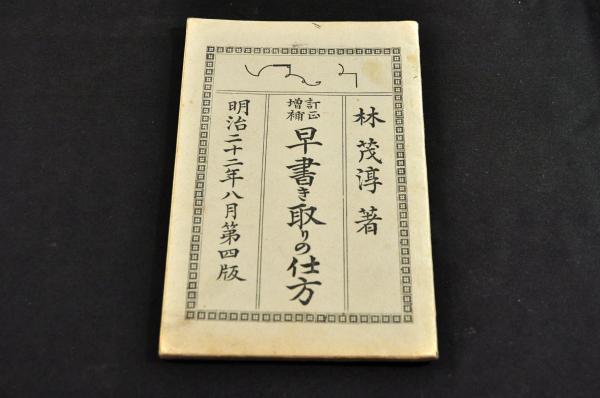 林茂淳著
訂正
増補
早書き取りの仕方
明治二十二年八月第四版